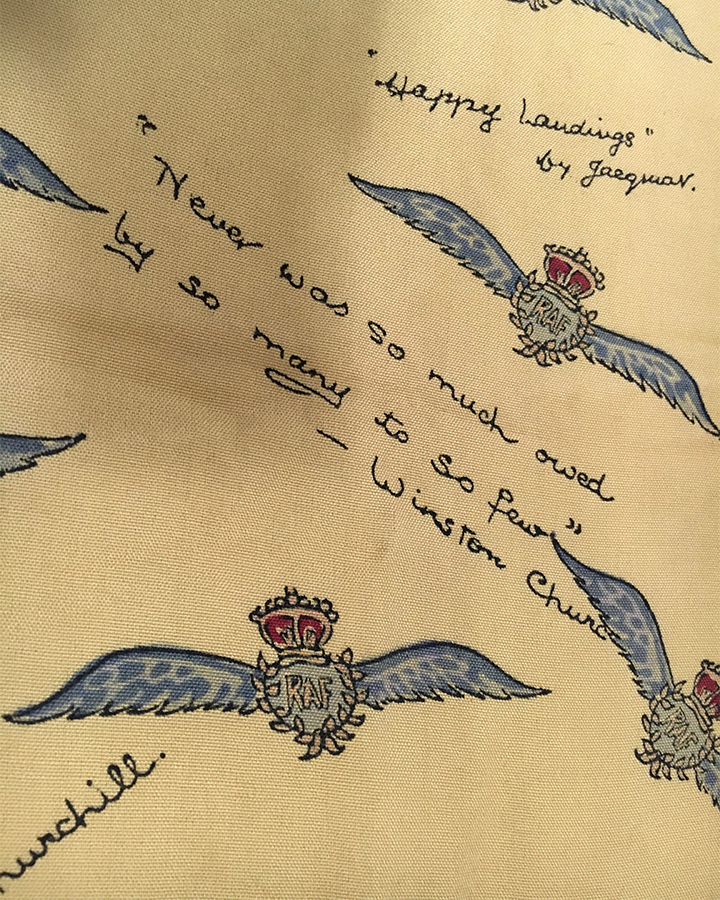 "Happy Landings"
by Jacqmar.
"Never was so much owed
by so many to so few"
— Winston Churc
RAF
RAF
RAF
hurchill.